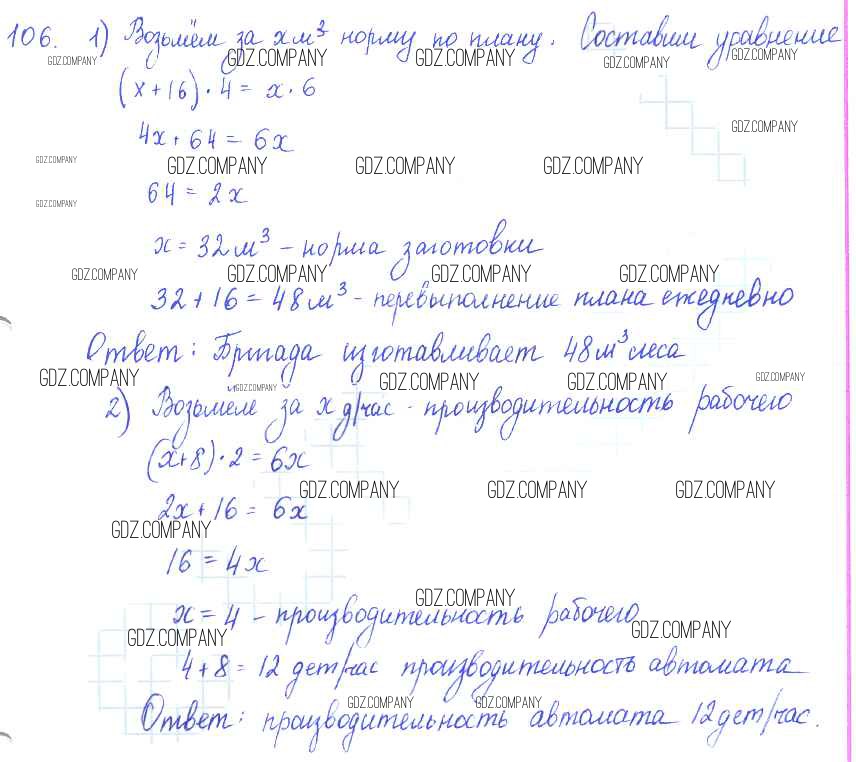 106. 1) Возьмём за x м³ норму по плану. Составим уравнение
GDZ.COMPANY GDZ.COMPANY GDZ.COMPANY GDZ.COMPANY GDZ.COMPANY
(x+16)·4=x·6
GDZ.COMPANY
4x+64=6x
GDZ.COMPANY GDZ.COMPANY GDZ.COMPANY GDZ.COMPANY
64=2x
GDZ.COMPANY
x=32м³-норма заготовки
GDZ.COMPANY GDZ.COMPANY GDZ.COMPANY GDZ.COMPANY
32+16=48м³-перевыполнение плана ежедневно
Ответ: Бригада изготавливает 48м³ леса
GDZ.COMPANY GDZ.COMPANY GDZ.COMPANY GDZ.COMPANY GDZ.COMPANY
2) Возьмем за x д/час - производительность рабочего
(x+8)·2=6x
GDZ.COMPANY GDZ.COMPANY GDZ.COMPANY
2x+16=6x
GDZ.COMPANY
16=4x
GDZ.COMPANY
x=4-производительность рабочего
GDZ.COMPANY GDZ.COMPANY
4+8=12 дет/час производительность автомата
GDZ.COMPANY GDZ.COMPANY
Ответ: производительность автомата 12дет/час.